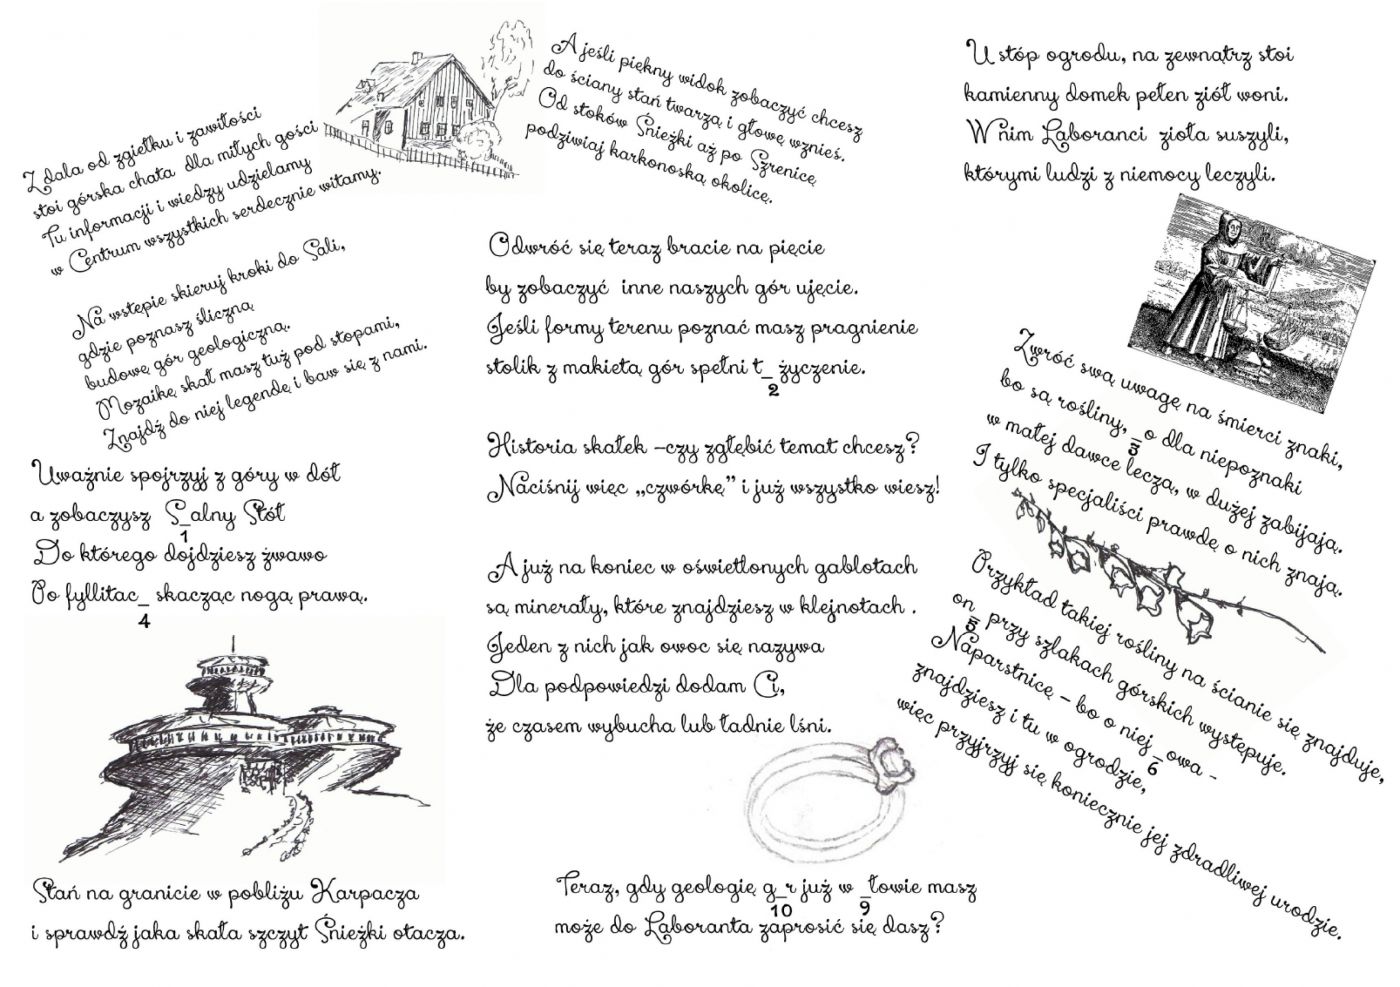 Z dala od zgiełku i zawiłości
stoi górska chata dla miłych gości
Tu informacji i wiedzy udzielamy
w Centrum wszystkich serdecznie witamy.
Na wstępie skieruj kroki do Sali,
gdzie poznasz śliczną
budowę gór geologiczną.
Mozaikę skał masz tuż pod stopami,
Znajdź do niej legendę i baw się z nami.
Uważnie spojrzyj z góry w dół
a zobaczysz S_alny Stół
1
Do którego dojdziesz żwawo
Po fyllitac_ skacząc nogą prawą.
4
Stań na granicie w pobliżu Karpacza
i sprawdź jaka skała szczyt Śnieżki otacza.
A jeśli piękny widok zobaczyć chcesz
do ściany stań twarzą i głowę wznieś.
Od stoków Śnieżki aż po Szrenicę
podziwiaj karkonoską okolicę.
Odwróć się teraz bracie na pięcie
by zobaczyć inne naszych gór ujęcie.
Jeśli formy terenu poznać masz pragnienie
stolik z makietą gór spełni t_ życzenie.
2
Historia skałek –czy zgłębić temat chcesz?
Naciśnij więc „czwórkę” i już wszystko wiesz!
A już na koniec w oświetlonych gablotach
są minerały, które znajdziesz w klejnotach .
Jeden z nich jak owoc się nazywa
Dla podpowiedzi dodam Ci,
że czasem wybucha lub ładnie lśni.
Teraz, gdy geologię g_r już w _łowie masz
10 9
może do Laboranta zaprosić się dasz?
U stóp ogrodu, na zewnątrz stoi
kamienny domek pełen ziół woni.
W nim Laboranci zioła suszyli,
którymi ludzi z niemocy leczyli.
Zwróć swą uwagę na śmierci znaki,
bo są rośliny, _o dla niepoznaki
3
w małej dawce leczą, w dużej zabijają.
I tylko specjaliści prawdę o nich znają.
Przykład takiej rośliny na ścianie się znajduje,
on_ przy szlakach górskich występuje.
5
Naparstnicę – bo o niej _owa –
6
znajdziesz i tu w ogrodzie,
więc przyjrzyj się koniecznie jej zdradliwej urodzie.